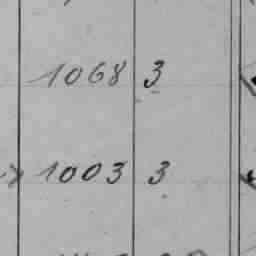 1068 3
1003 3